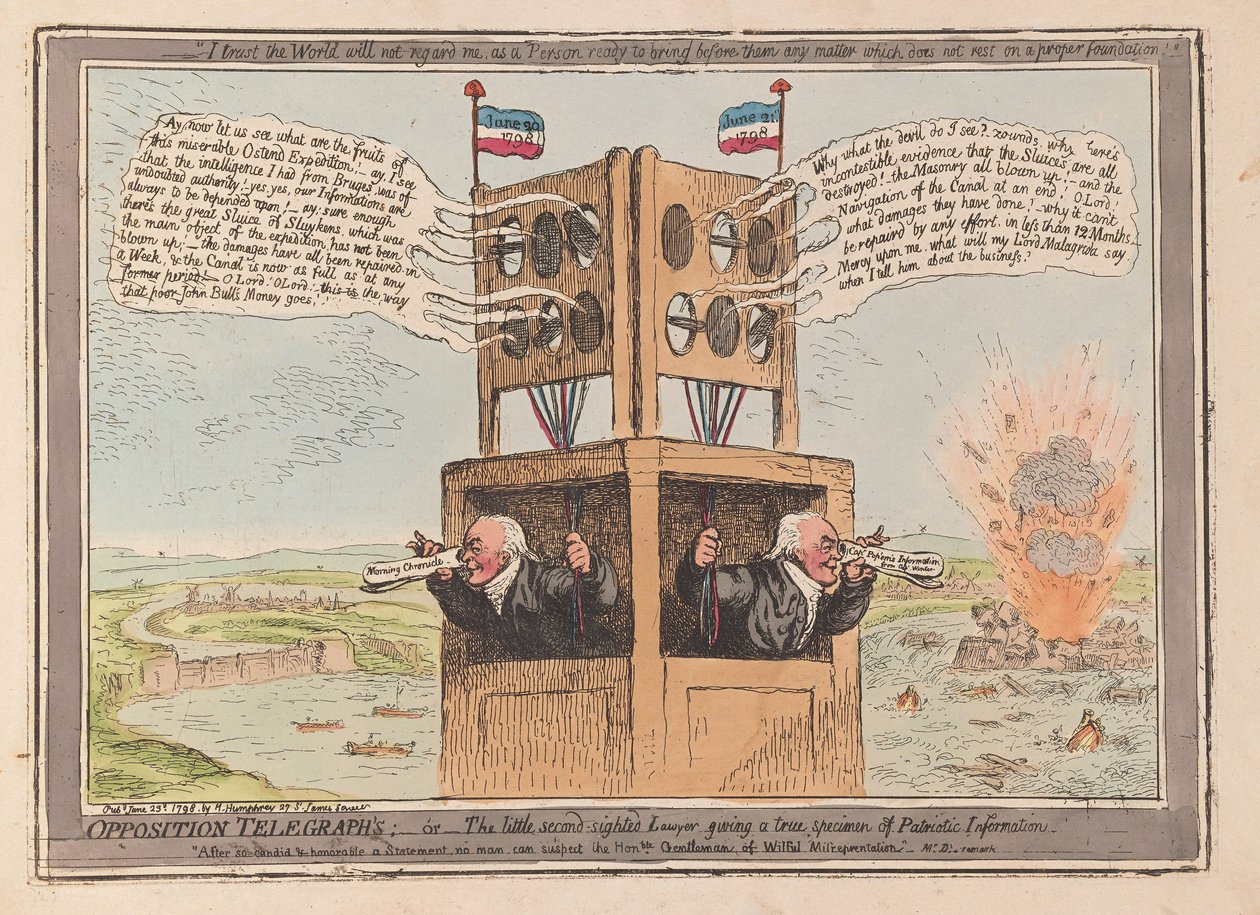 "I trust the World will not regard me, as a Person ready to bring before them any matter which does not rest on a proper foundation!"
June 20
1798
June 21
1798
Ay now let us see what are the fruits of
this miserable Ostend Expedition! – ay, I see
that the intelligence I had from Bruges, was of
undoubted authority! – yes, yes, our Informations are
always to be depended upon! – ay; sure enough
there's the great Sluice of Slykens, which was
the main object of the expedition, has not been
blown up; – the damages have all been repaired in
a Week, & the Canal is now as full as at any
former period! – O Lord! O Lord! this is the way
that poor John Bull's Money goes!
Why what the devil do I see? zounds, why here's
incontestible evidence that the Sluices, are all
destroyed! – the Masonry all blown up; – and the
Navigation of the Canal at an end! O Lord!
what damages they have done! – why it can't
be repaird by any effort, in less than 12 Months –
Mercy upon me, what will my Lord Malagrida say
when I tell him about the business?
Morning Chronicle –
Capt Popham's Information
from Col. Winter
Pubd June 23d 1798. by H. Humphrey 27 St James Street
OPPOSITION TELEGRAPH'S; – or – The little second-sighted Lawyer giving a true specimen of Patriotic Information –
"After so candid & honorable a Statement, no man can suspect the Honble Gentleman, of Wilful Misreprentation" – Mr D's remark